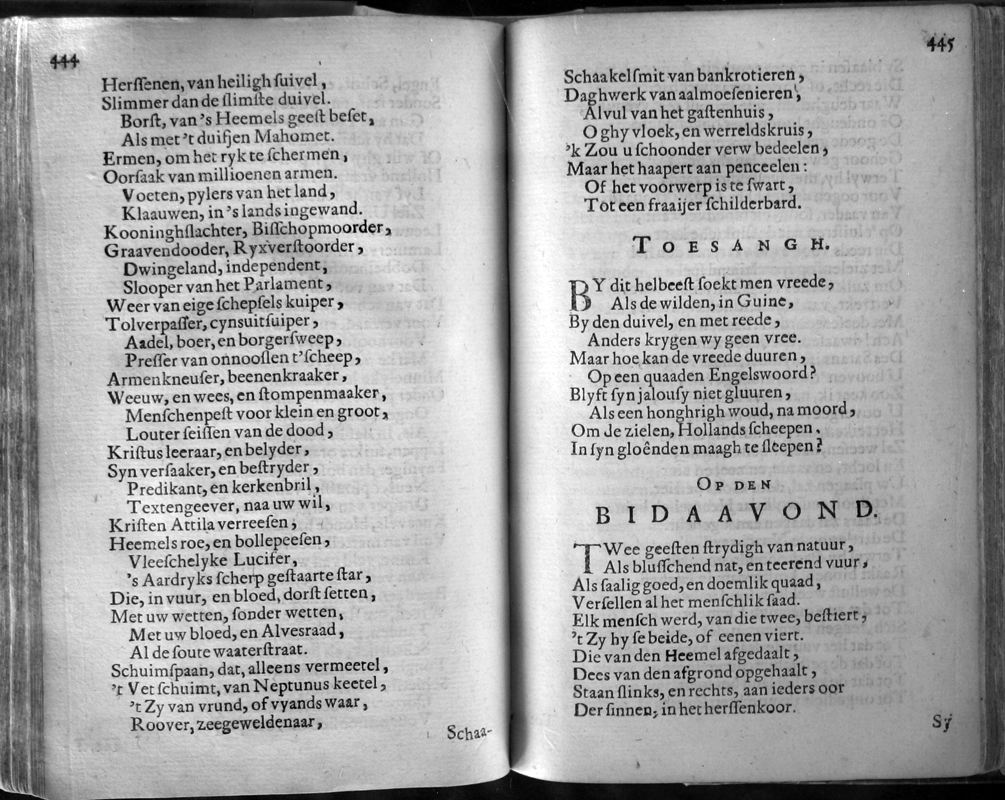 444
Herſſenen, van heiligh ſuivel,
Slimmer dan de ſlimſte duivel.
Borſt, van 's Heemels geeſt beſet,
Als met 't duifjen Mahomet.
Ermen, om het ryk te ſchermen,
Oorſaak van millioenen armen.
Voeten, pylers van het land,
Klaauwen, in 's lands ingewand.
Kooninghſlachter, Biſſchopmoorder,
Graavendooder, Ryxverſtoorder,
Dwingeland, independent,
Slooper van het Parlament,
Weer van eige ſchepſels kuiper,
Tolverpaſſer, cynsuitſuiper,
Aadel, boer, en borgerſweep,
Preſſer van onnooſlen t'ſcheep,
Armenkneuſer, beenenkraaker,
Weeuw, en wees, en ſtompenmaaker,
Menſchenpeſt voor klein en groot,
Louter ſeiſſen van de dood,
Kriſtus leeraar, en belyder,
Syn verſaaker, en beſtryder,
Predikant, en kerkenbril,
Textengeever, na uw wil,
Kriſten Attila verreeſen,
Heemels roe, en bollepeeſen,
Vleeſchelyke Lucifer,
's Aardryks ſcherp geſtaarte ſtar,
Die, in vuur, en bloed, dorſt ſetten,
Met uw wetten, ſonder wetten,
Met uw bloed, en Alvesraad,
Al de ſoute waaterſtraat.
Schuimſpaan, dat, alleens vermeetel,
't Vet ſchuimt, van Neptunus keetel,
't Zy van vrund, of vyands waar,
Roover, zeegeweldenaar,
Schaa-
445
Schaakelſmit van bankrotieren,
Daghwerk van aalmoeſenieren,
Alvul van het gaſtenhuis,
O ghy vloek, en werreldskruis,
'k Zou u ſchoonder verw bedeelen,
Maar het haapert aan penceelen:
Of het voorwerp is te ſwart,
Tot een fraaijer ſchilderbard.
TOESANGH.
BY dit helbeeſt ſoekt men vreede,
Als de wilden, in Guine,
By den duivel, en met reede,
Anders krygen wy geen vree.
Maar hoe kan de vreede duuren,
Op een quaaden Engelswoord?
Blyft ſyn jalouſy niet gluuren,
Als een honghrigh woud, na moord,
Om de zielen, Hollands ſcheepen,
In ſyn gloênden maagh te ſleepen?
OP DEN
BIDAAVOND.
TWee geeſten ſtrydigh van natuur,
Als bluſſchend nat, en teerend vuur,
Als ſaalig goed, en doemlik quaad,
Verſellen al het menſchlik ſaad.
Elk menſch werd, van die twee, beſtiert,
't Zy hy ſe beide, of eenen viert.
Die van den Heemel afgedaalt,
Dees van den afgrond opgehaalt,
Staan ſlinks, en rechts, aan ieders oor
Der ſinnen, in het herſſenkoor.
Sy